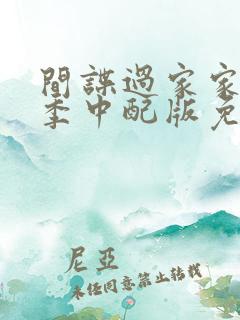 間諜過家家
季中配版免
尼亞
未經同意禁止轉載